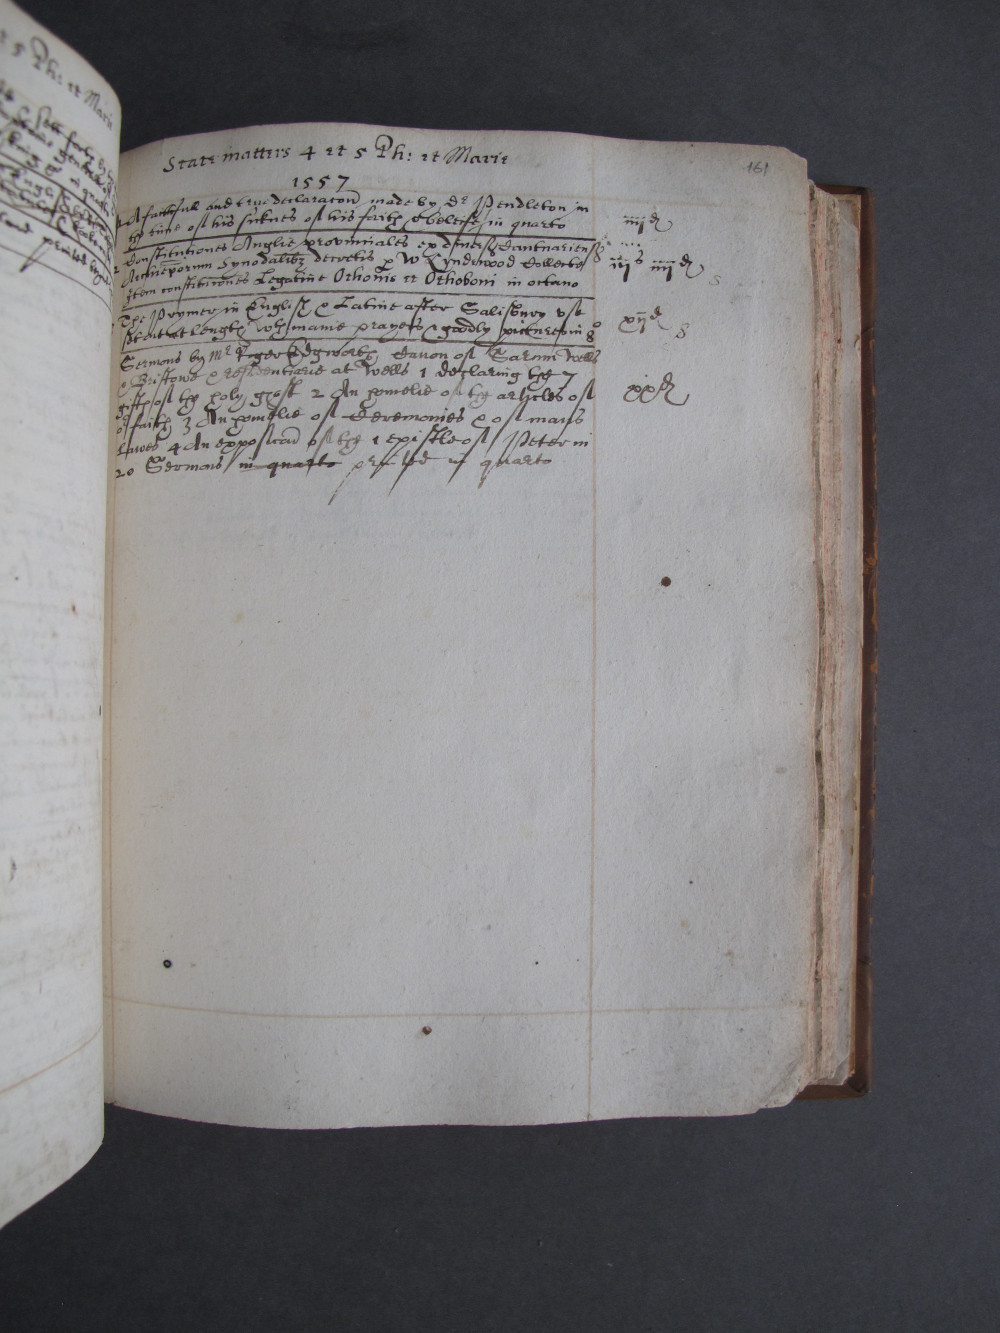 5 Ph: et Marie
State matters 4 et 5 Ph: et Marie
161
1557
A faithfull and true declaracon made by Dr Pendleton in
the time of his sicknes of his faith & beleife in quarto
iiijd
Constitutiones Anglie provinciales ex diversis Cantuariensi
Archieporum Synodalibz decretis p W Lyndewood Collecte
iijs iiijd
Item constitucones Legatine Othonis et Othoboni in octavo
The Prymer in English & Latine after Salisbury vse
sett out at length wth manie prayers & goodly pictures in 8o
xijd
Sermons by Mr Roger Edgworth Canon of Sarum Wells
& Bristowe & residentiarie at Wells 1 declaring the 7
gifts of the holy ghost 2 An homelie of the articles of
of faith 3 An homelie of Ceremonies & of mans
xxd
Lawes 4 An exposicon of the 1 epistle of Peter in
20 Sermons in quarto printed in quarto